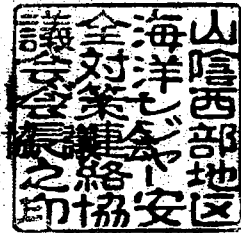 山陰西部地区
海洋レジャー安
全対策連絡協
議会会長之印